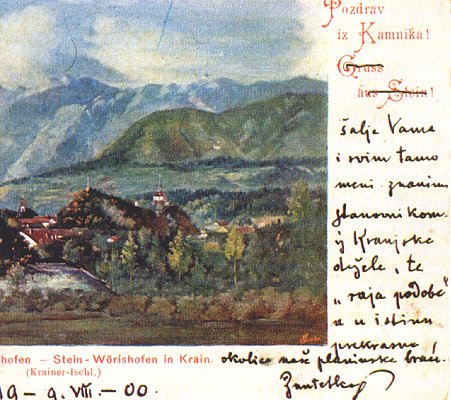 Pozdrav
iz Kamnika!
Gruss
aus Stein!
šalje Vama
i svim tamo
meni znanim
stanovnikom
iz Kranjske
dežele, te
„raja podobe"
a u istinu
prekrasne
hofen – Stein-Wörishofen in Krain.
okolice naše planinske braće.
(Krainer-Ischl.)
19 - 9. VIII. - 00.